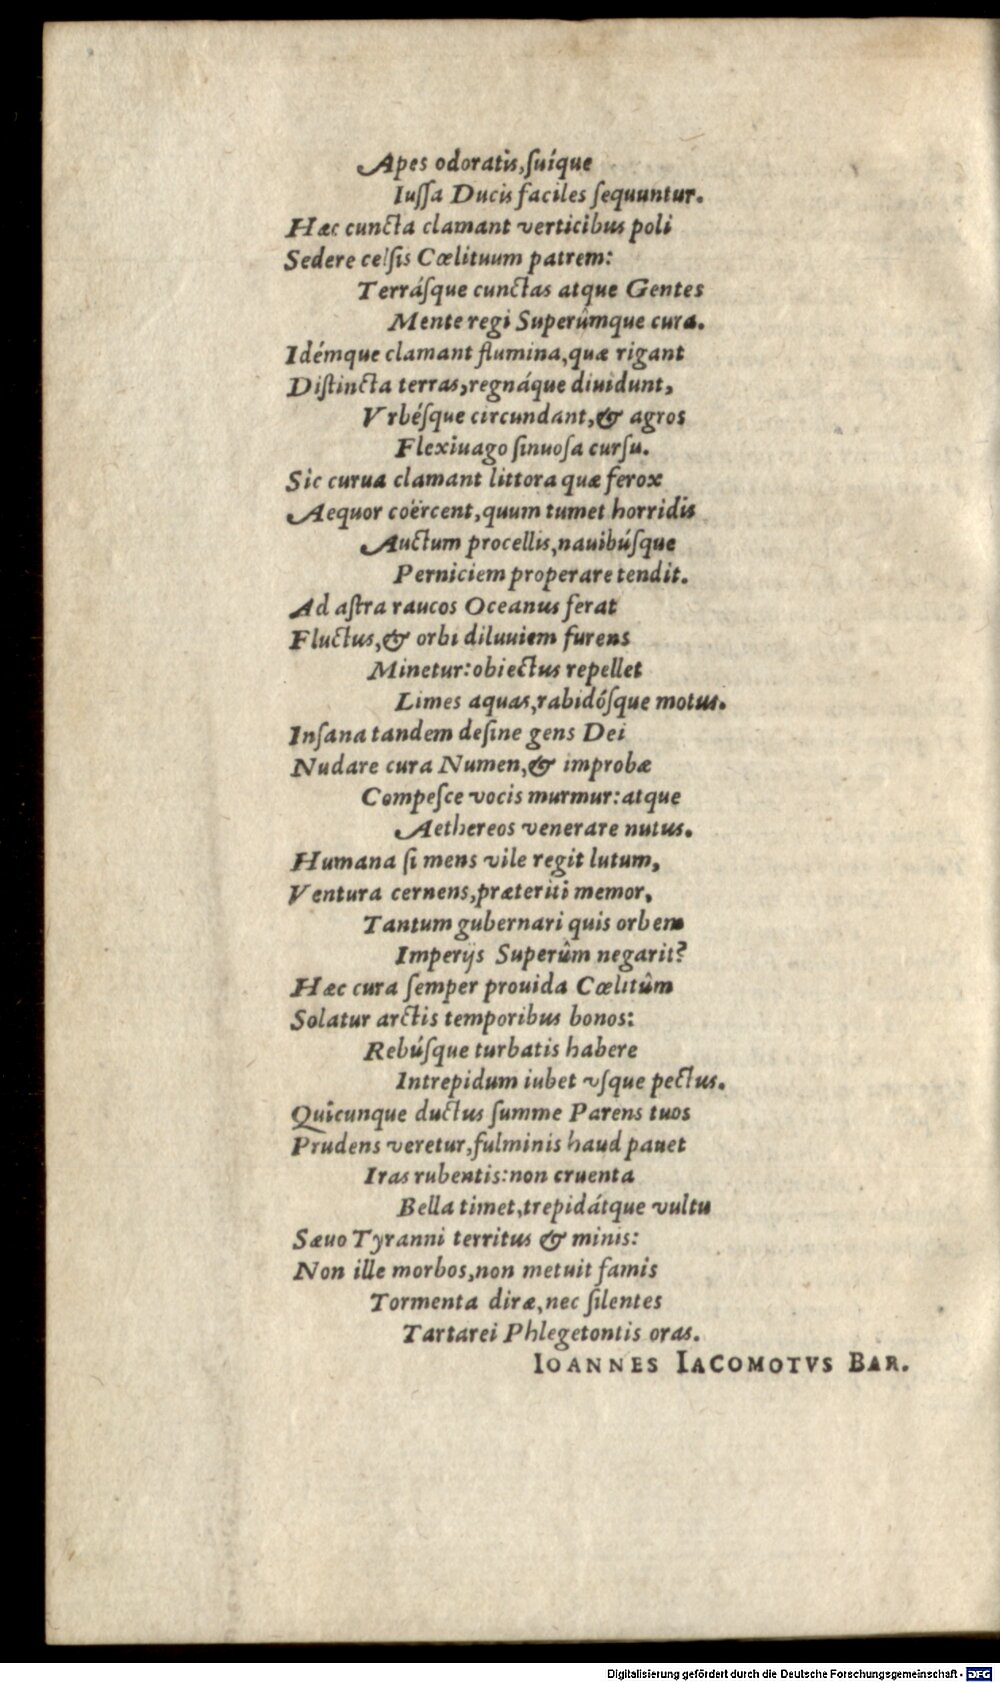 Apes odoratis, ſuíque
Iuſſa Ducis faciles ſequuntur.
Hæc cuncta clamant verticibus poli
Sedere celſis Cœlituum patrem:
Terráſque cunctas atque Gentes
Mente regi Superûmque cura.
Idémque clamant flumina, quæ rigant
Diſtincta terras, regnáque diuidunt,
Vrbéſque circundant, & agros
Flexiuago ſinuoſa curſu.
Sic curua clamant littora quæ ferox
Aequor coërcent, quum tumet horridis
Auctum procellis, nauibúſque
Perniciem properare tendit.
Ad aſtra raucos Oceanus ferat
Fluctus, & orbi diluuiem furens
Minetur: obiectus repellet
Limes aquas, rabidóſque motus.
Inſana tandem deſine gens Dei
Nudare cura Numen, & improbæ
Compeſce vocis murmur: atque
Aethereos venerare nutus.
Humana ſi mens vile regit lutum,
Ventura cernens, præteriti memor,
Tantum gubernari quis orbem
Imperijs Superûm negarit?
Hæc cura ſemper prouida Cœlitûm
Solatur arctis temporibus bonos:
Rebúſque turbatis habere
Intrepidum iubet vſque pectus.
Quicunque ductus ſumme Parens tuos
Prudens veretur, fulminis haud pauet
Iras rubentis: non cruenta
Bella timet, trepidátque vultu
Sæuo Tyranni territus & minis:
Non ille morbos, non metuit famis
Tormenta diræ, nec ſilentes
Tartarei Phlegetontis oras.
IOANNES IACOMOTVS BAR.
Digitalisierung gefördert durch die Deutsche Forschungsgemeinschaft - DFG